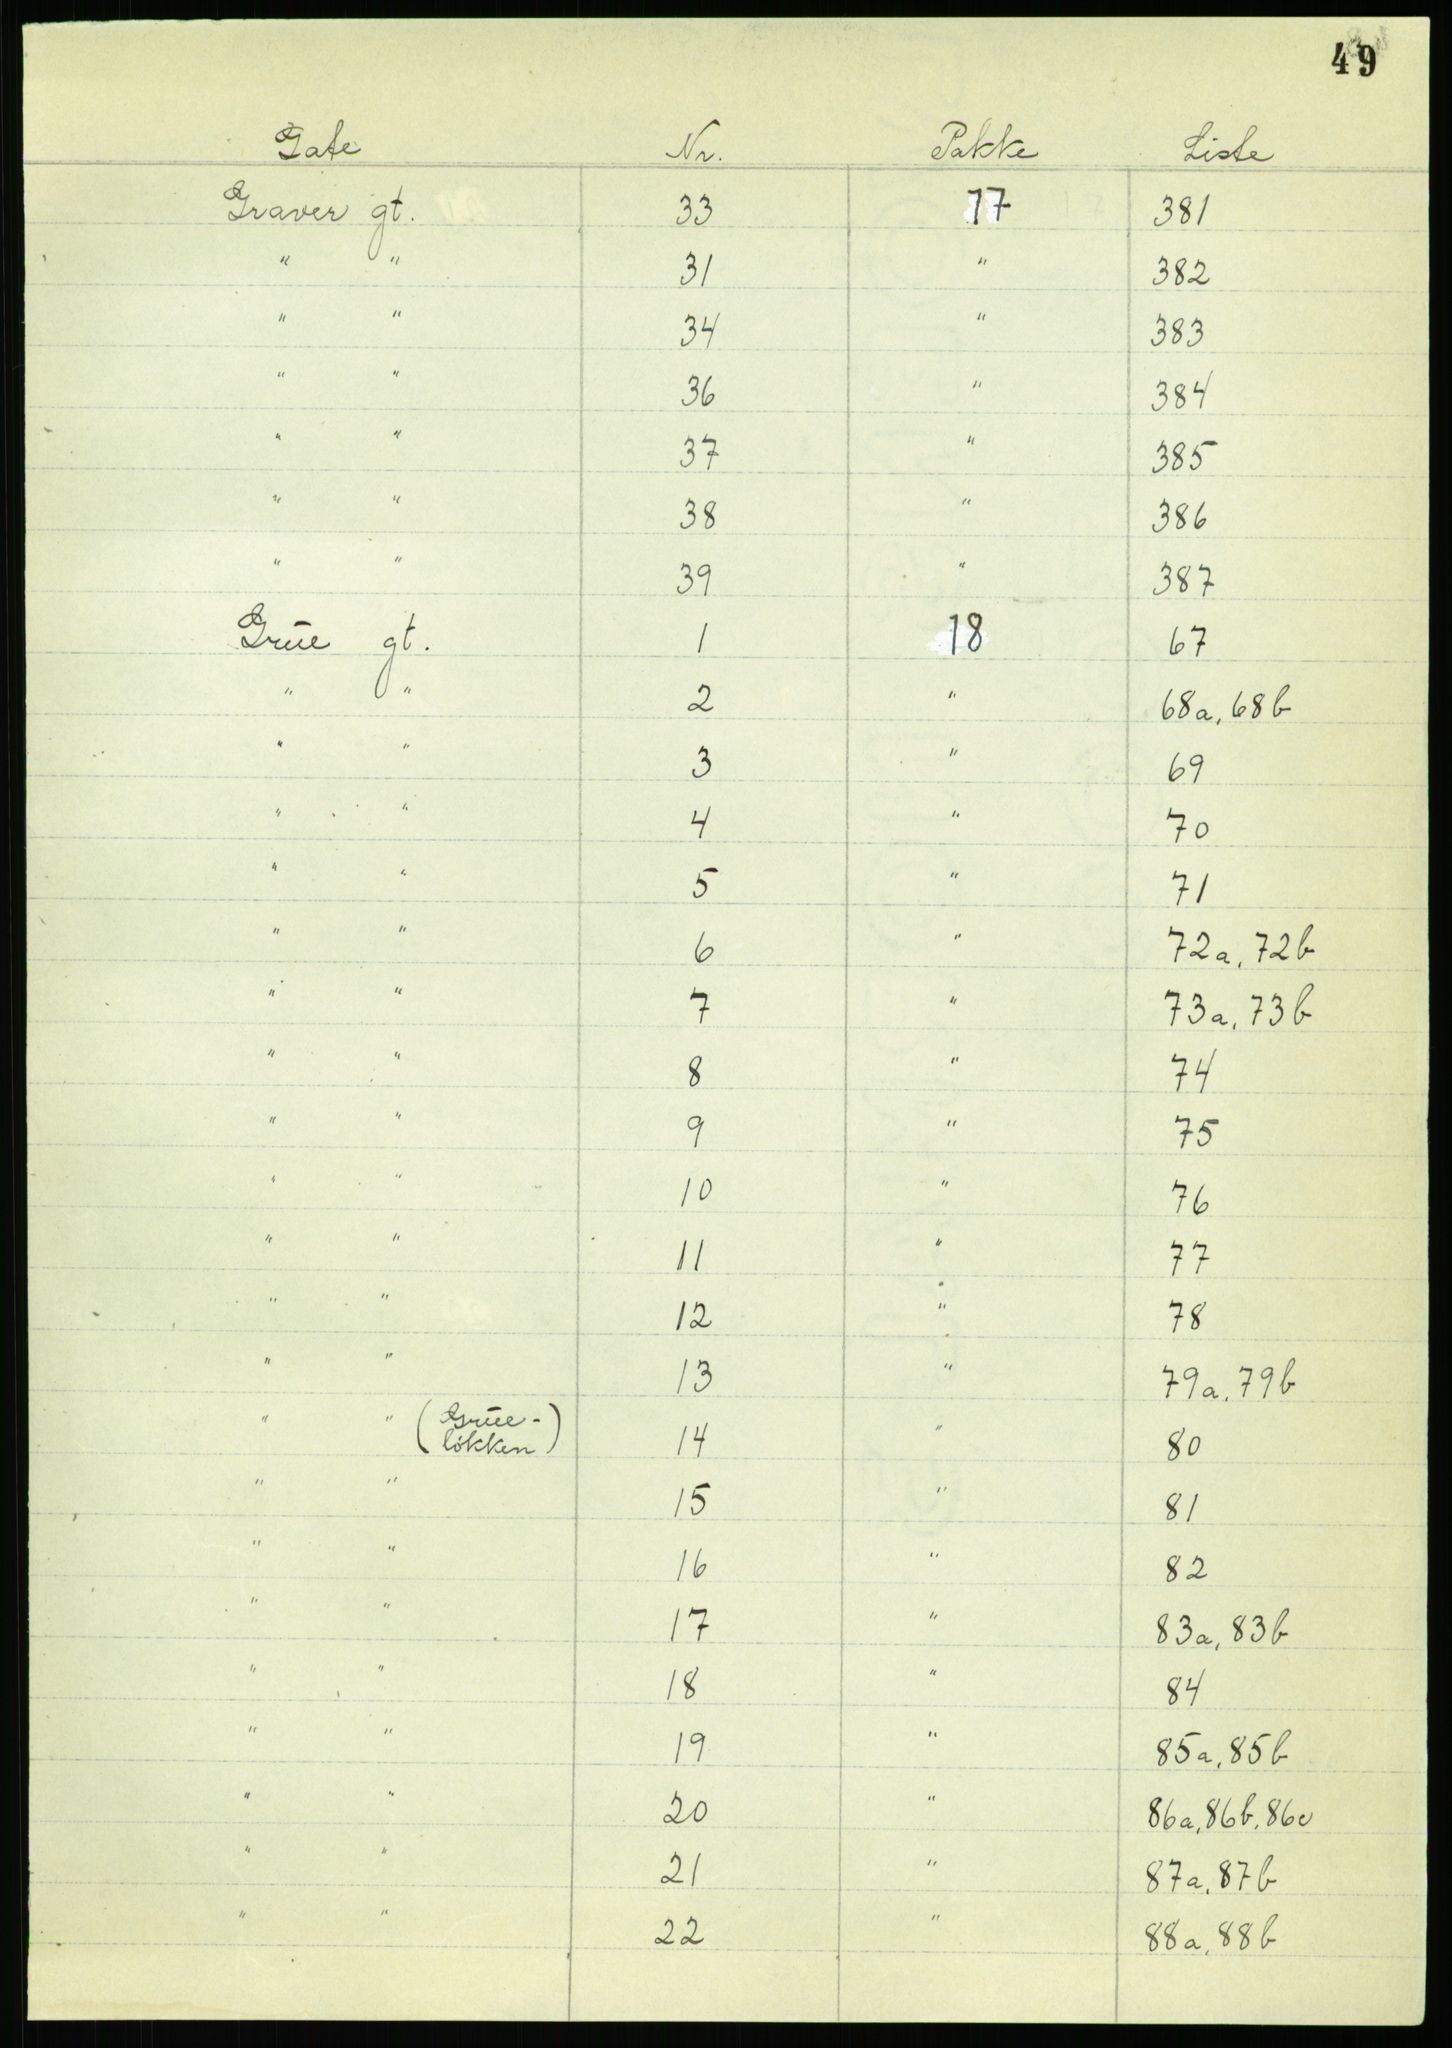 49
Gate Nr. Pakke Liste
Graver gt. 33 17 381
" " 31 " 382
" " 34 " 383
" " 36 " 384
" " 37 " 385
" " 38 " 386
" " 39 " 387
Grüe gt. 1 18 67
" " 2 " 68a, 68b
" " 3 " 69
" " 4 " 70
" " 5 " 71
" " 6 " 72a, 72b
" " 7 " 73a, 73b
" " 8 " 74
" " 9 " 75
" " 10 " 76
" " 11 " 77
" " 12 " 78
" " 13 " 79a, 79b
" " (Grüe-løkken) 14 " 80
" " 15 " 81
" " 16 " 82
" " 17 " 83a, 83b
" " 18 " 84
" " 19 " 85a, 85b
" " 20 " 86a, 86b, 86c
" " 21 " 87a, 87b
" " 22 " 88a, 88b